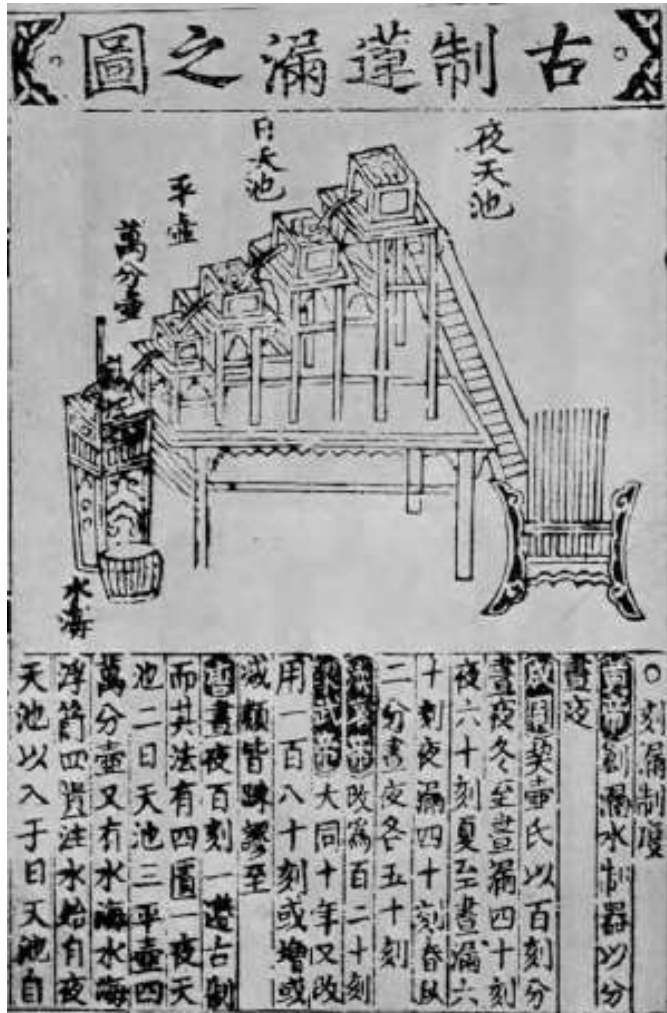 古制蓮漏之圖
夜天池
日天池
平壺
萬分壺
水海
○刻漏制度
黃帝創漏水制器以分
晝夜
成周挈壺氏以百刻分
晝夜冬至晝漏四十刻
夜六十刻夏至晝漏六
十刻夜漏四十刻春秋
二分晝夜各五十刻
漢哀帝改為百二十刻
梁武帝大同十年又改
用一百八十刻或增或
減類皆踈謬至
唐晝夜百刻一遵古制
而其法有四匱一夜天
池二日天池三平壺四
萬分壺又有水海水海
浮箭四匱注水始自夜
天池以入于日天池自